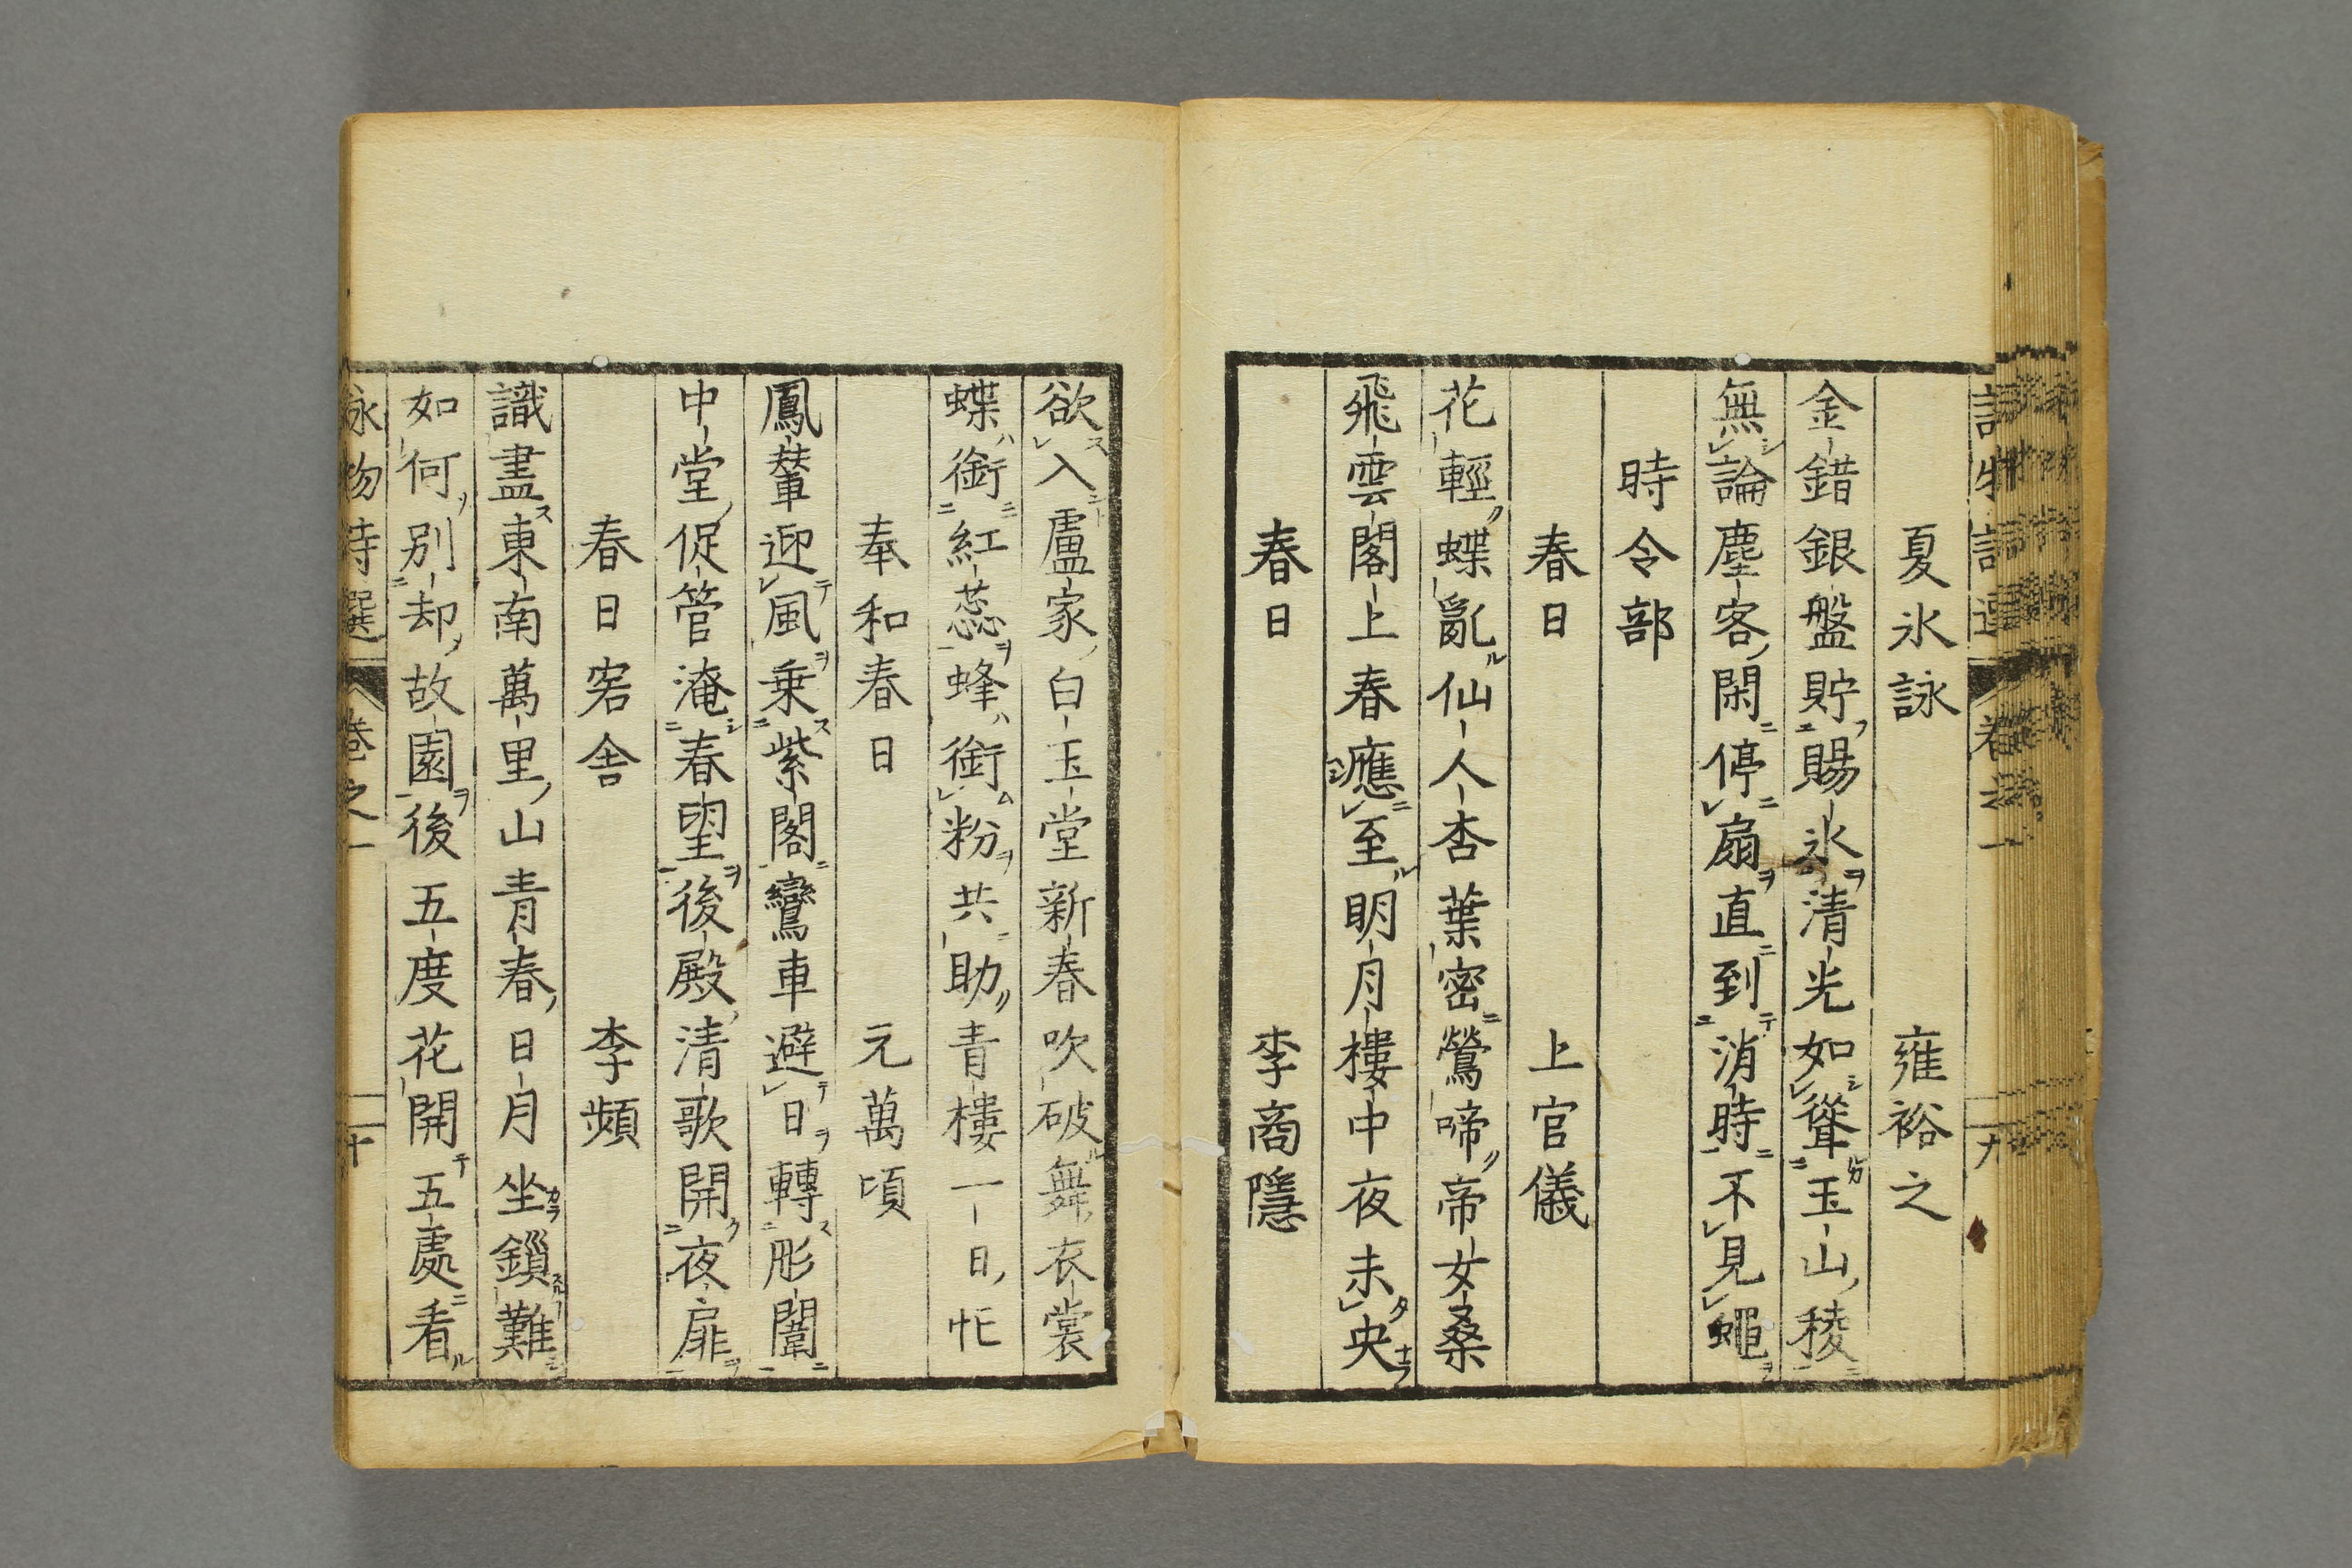 夏氷詠　雍裕之
金錯銀盤貯賜氷清光如聳玉山稜
無論塵客閑停扇直到消時不見蠅
時令部
春日　上官儀
花輕蝶亂仙人杏葉密鶯啼帝女桑
飛雲閣上春應至明月樓中夜未央
春日　李商隱
欲入盧家白玉堂新春吹破舞衣裳
蝶銜紅蕊蜂銜粉共助青樓一日忙
奉和春日　元萬頃
鳳輦迎風乗紫閣鸞車避日轉彤闈
中堂促管淹春望後殿清歌開夜扉
春日宿舍　李頻
識盡東南萬里山青春日月坐鎖難
如何別却故園後五度花開五處看
詠物詩選　卷之一　十